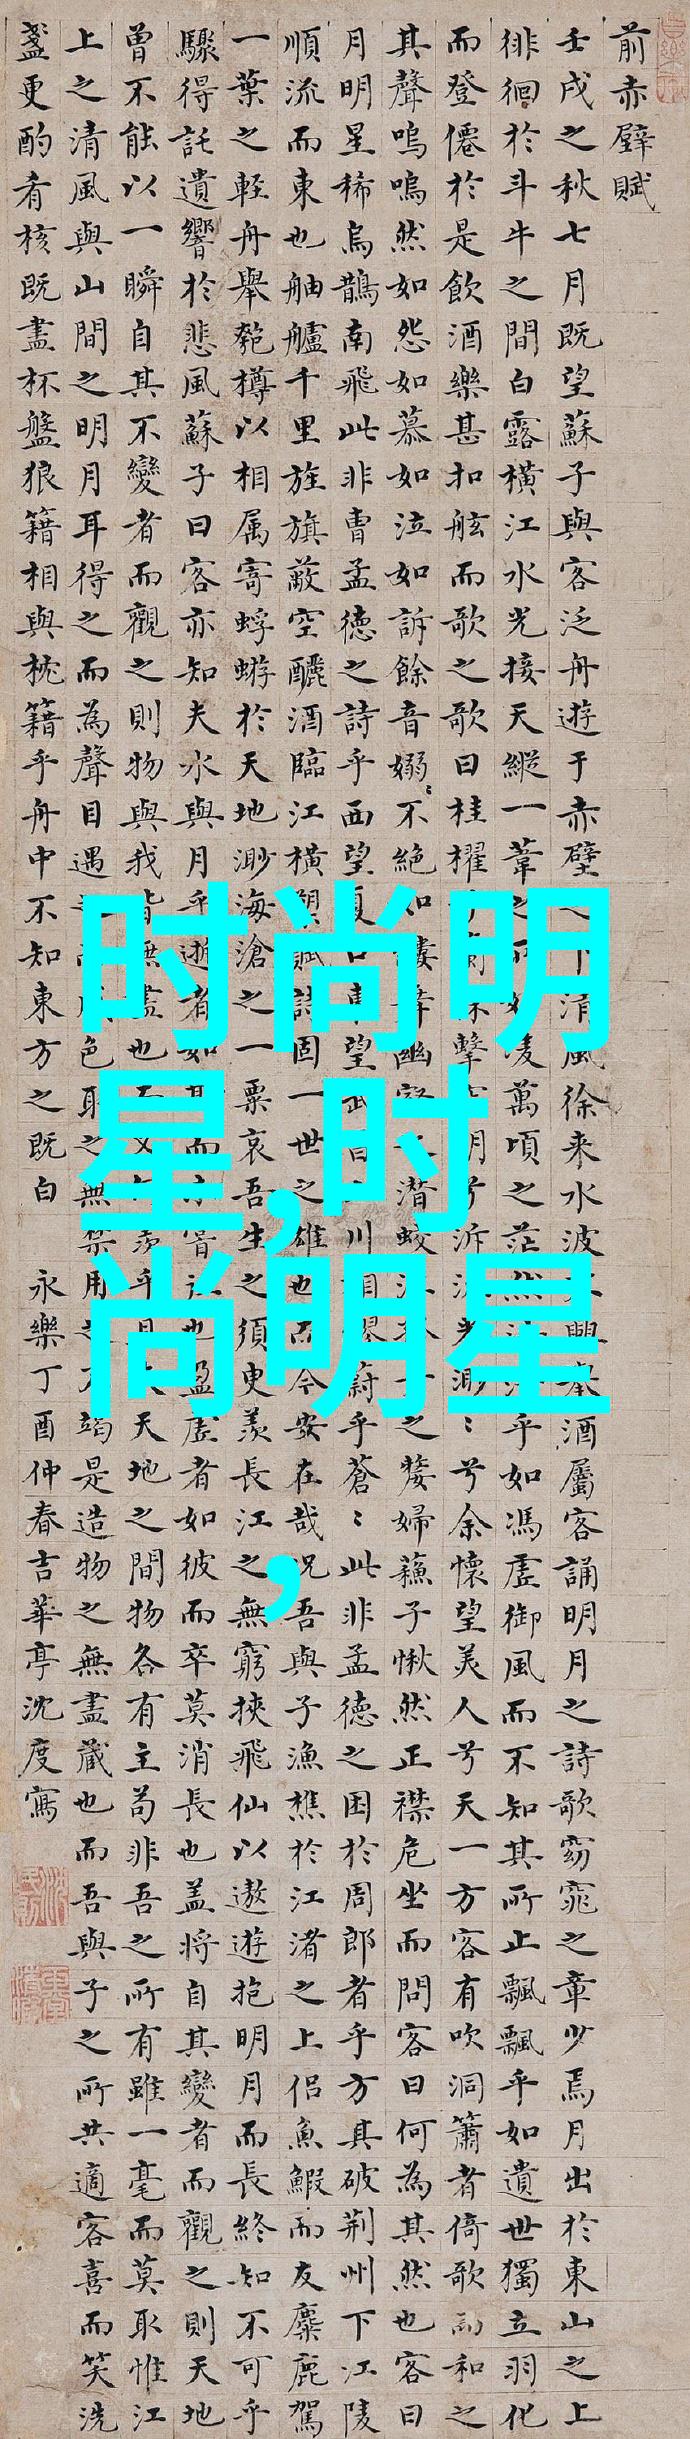 前赤壁賦
壬戌之秋七月既望蘇子與客泛舟遊于赤壁之下清風徐来水波不興舉酒屬客誦明月之詩歌窈窕之章少焉月出於東山之上
徘徊於斗牛之間白露橫江水光接天縱一葦之所如凌萬頃之茫然浩浩乎如馮虛御風而不知其所止飄飄乎如遺世獨立羽化
而登僊於是飲酒樂甚扣舷而歌之歌曰桂櫂兮蘭槳擊空明兮泝流光渺〻兮余懷望美人兮天一方客有吹洞簫者倚歌而和之
其聲嗚嗚然如怨如慕如泣如訴餘音嫋〻不絕如縷舞幽壑之潛蛟泣孤舟之嫠婦蘓子愀然正襟危坐而問客曰何為其然也客曰
月明星稀烏鵲南飛此非曹孟德之詩乎西望夏口東望武昌山川相繆蔚乎蒼〻此非孟德之困於周郎者乎方其破荊州下江陵
順流而東也舳艫千里旌旗蔽空釃酒臨江橫槊賦詩固一世之雄也而今安在哉況吾與子漁樵於江渚之上侶魚鰕而友麋鹿駕
一葉之輕舟舉匏樽以相属寄蜉蝣於天地渺海滄之一粟哀吾生之須臾羨長江之無窮挾飛仙以遨遊抱明月而長終知不可乎
驟得託遺響於悲風蘇子曰客亦知夫水與月乎逝者如斯而未嘗往也盈虛者如彼而卒莫消長也盖將自其變者而觀之則天地
曾不能以一瞬自其不變者而觀之則物與我皆無盡也而又何羨乎且夫天地之間物各有主苟非吾之所有雖一毫而莫取惟江
上之清風與山間之明月耳得之而為聲目遇之而成色取之無禁用之不竭是造物之無盡藏也而吾與子之所共適客喜而笑洗
盞更酌肴核既盡杯盤狼籍相與枕籍乎舟中不知東方之既白 永樂丁酉仲春吉華亭沈度寫
时尚明
星,时
尚明星
,